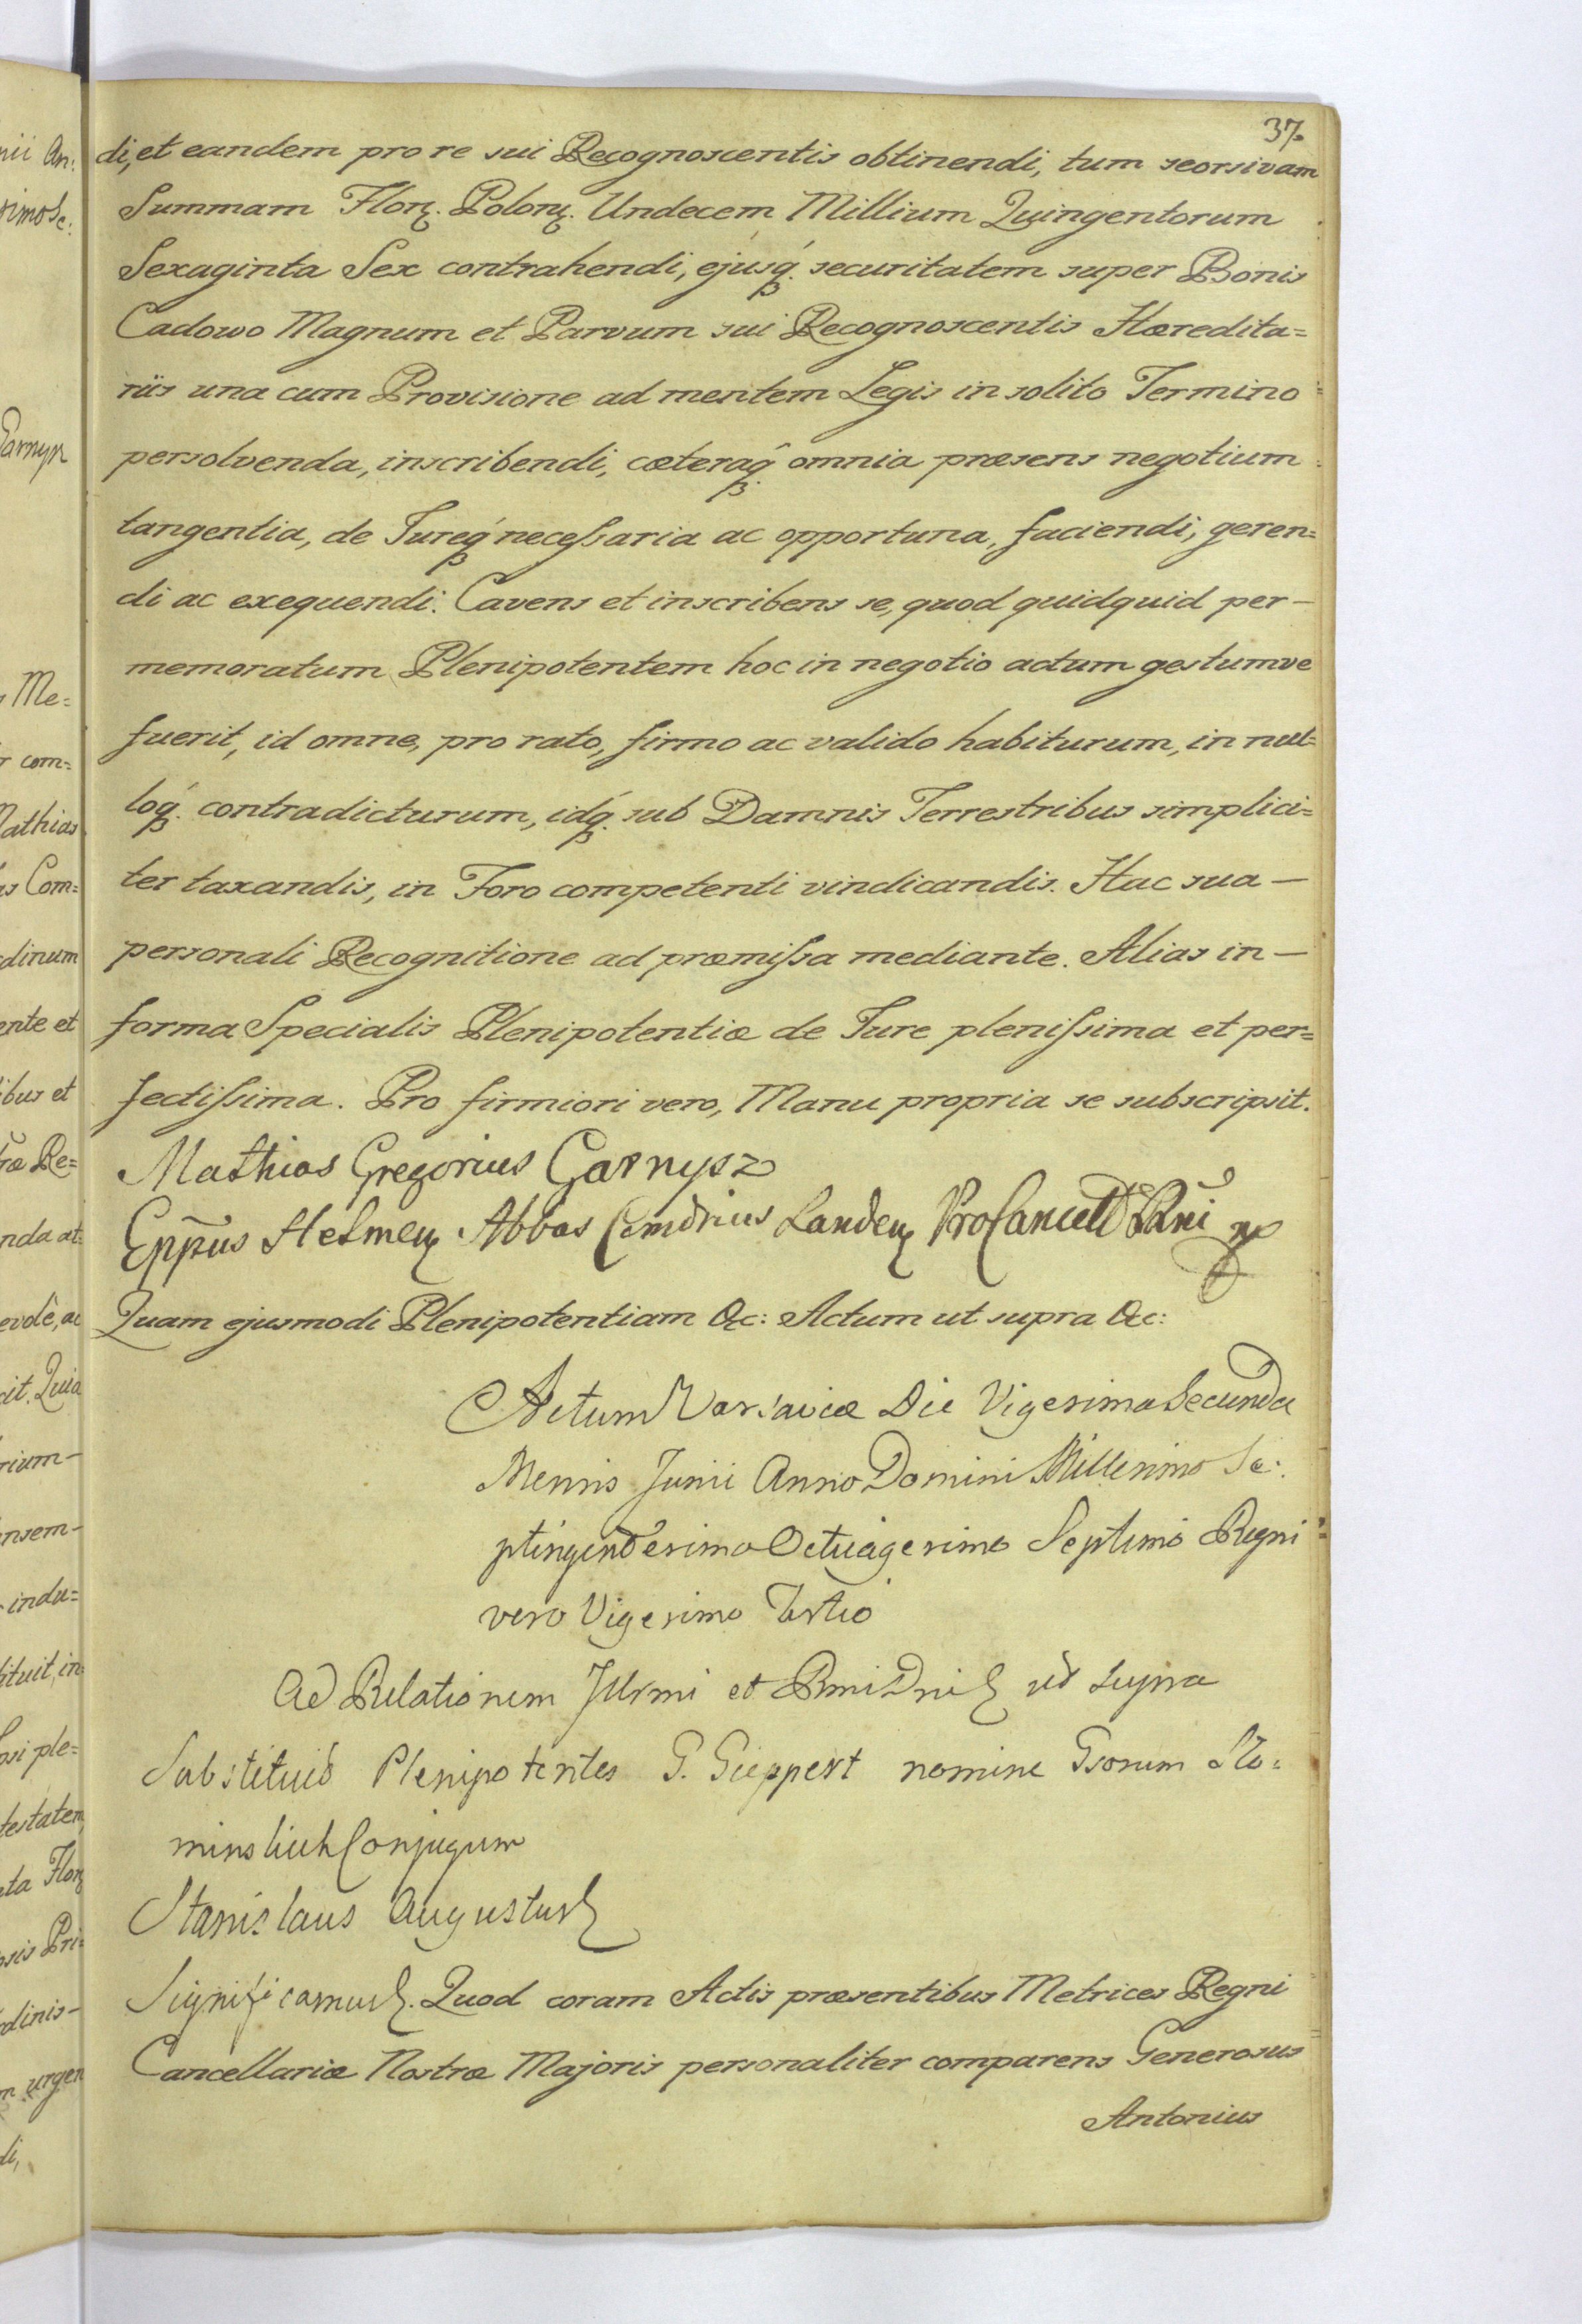 37.
di, et eandem pro re sui Recognoscentis obtinendi, tum seorsivam
Summam Flor. Polon. Undecem Millium Quingentorum
Sexaginta Sex contrahendi, ejusq. securitatem super Bonis
Cadowo Magnum et Parvum sui Recognoscentis Hæredita=
riis una cum Provisione ad mentem Legis in solito Termino
persolvenda, inscribendi, cæteraq. omnia præsens negotium
tangentia, de Jureq necessaria ac opportuna, faciendi, geren=
di ac exequendi. Cavens et inscribens se, quod quidquid per-
memoratum Plenipotentem hoc in negotio actum gestumve
fuerit, id omne, pro rato, firmo ac valido habiturum, in nul=
loq. contradicturum, idq. sub Damnis Terrestribus simplici=
ter taxandis, in Foro competenti vindicandis. Hac sua-
personali Recognitione ad præmissa mediante. Alias in-
forma Specialis Plenipotentiæ de Jure plenissima et per=
fectissima. Pro firmiori vero, Manu propria se subscripsit.
Mathias Gregorius Garnysz
Eppus Helmen. Abbas Landen
Quam ejusmodi Plenipotentiam &c: Actum ut supra &c:
Actum Varsaviæ Die Vigesima Secunda
Mensis Junii Anno Domini Millesimo Se:
ptingentesimo Octuagesimo Septimo Regni
vero Vigesimo Tertio
Ad Relationem Illrmi et Rmi Dni ut supra
Substituit Plenipotentes G. Gieppert nomine Gsorum Sto=
minskich Conjugum
Stanislaus Augustus
Significamus. Quod coram Actis præsentibus Metrices Regni
Cancellariæ Nostræ Majoris personaliter comparens Generosus
Antonius